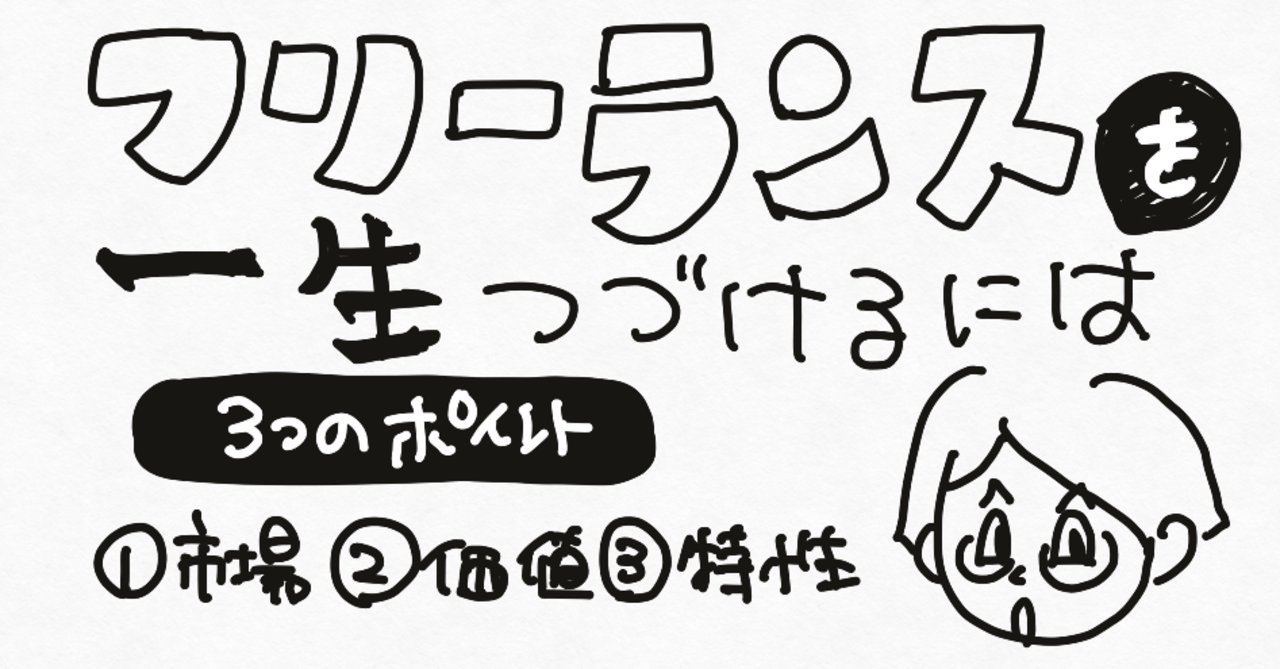 フリーランスを
一生つづけるには
3つのポイント
①市場②価値③特性